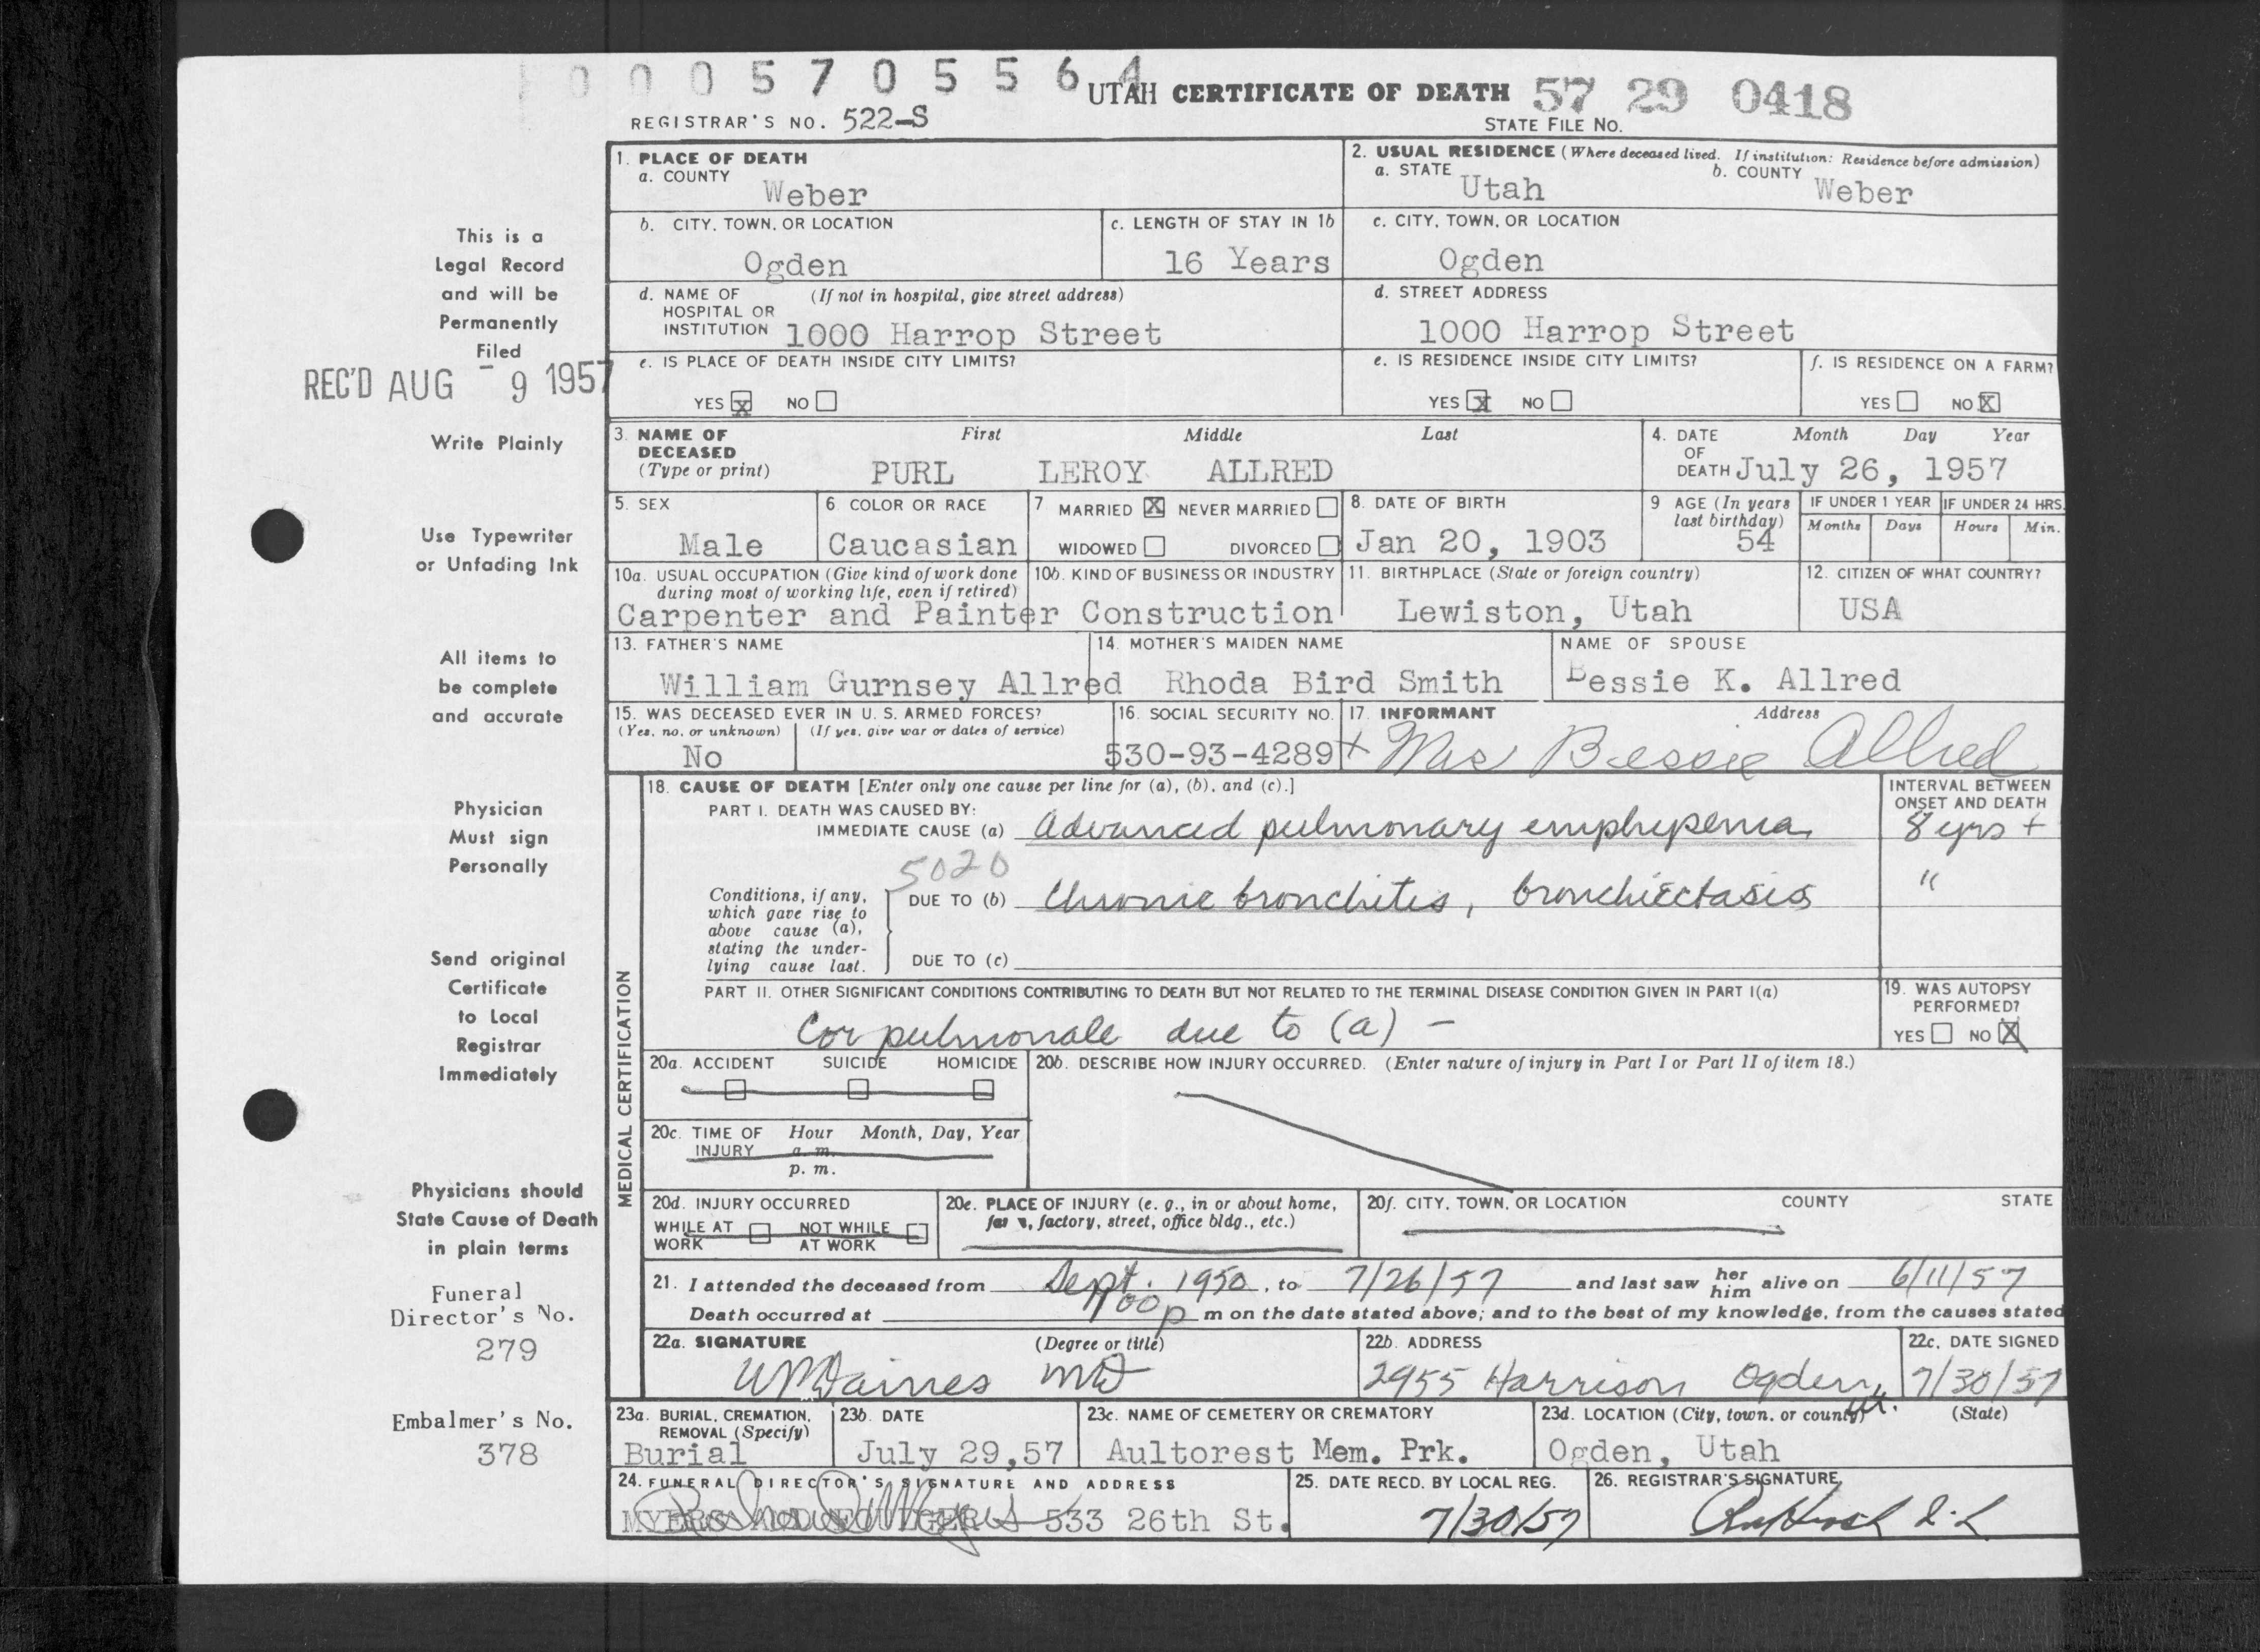 0 0 0 5 7 0 5 5 6 4
UTAH CERTIFICATE OF DEATH 57 29 0418
REGISTRAR'S NO. 522-S
STATE FILE NO.
This is a
Legal Record
and will be
Permanently
Filed
REC'D AUG - 9 1957
Write Plainly
Use Typewriter
or Unfading Ink
All items to
be complete
and accurate
Physician
Must sign
Personally
Send original
Certificate
to Local
Registrar
Immediately
Physicians should
State Cause of Death
in plain terms
Funeral
Director's No.
279
Embalmer's No.
378
1. PLACE OF DEATH
a. COUNTY
Weber
2. USUAL RESIDENCE (Where deceased lived. If institution: Residence before admission)
a. STATE Utah b. COUNTY Weber
b. CITY, TOWN, OR LOCATION
Ogden
c. LENGTH OF STAY IN 1b
16 Years
c. CITY, TOWN, OR LOCATION
Ogden
d. NAME OF (If not in hospital, give street address)
HOSPITAL OR
INSTITUTION 1000 Harrop Street
d. STREET ADDRESS
1000 Harrop Street
e. IS PLACE OF DEATH INSIDE CITY LIMITS?
YES X NO
e. IS RESIDENCE INSIDE CITY LIMITS?
YES X NO
f. IS RESIDENCE ON A FARM?
YES NO X
3. NAME OF DECEASED (Type or print)
First Middle Last
PURL LEROY ALLRED
4. DATE OF DEATH Month Day Year
July 26, 1957
5. SEX
Male
6 COLOR OR RACE
Caucasian
7 MARRIED X NEVER MARRIED
WIDOWED DIVORCED
8. DATE OF BIRTH
Jan 20, 1903
9 AGE (In years last birthday)
54
IF UNDER 1 YEAR
Months Days
IF UNDER 24 HRS.
Hours Min.
10a. USUAL OCCUPATION (Give kind of work done
during most of working life, even if retired)
Carpenter and Painter
10b. KIND OF BUSINESS OR INDUSTRY
Construction
11. BIRTHPLACE (State or foreign country)
Lewiston, Utah
12. CITIZEN OF WHAT COUNTRY?
USA
13. FATHER'S NAME
William Gurnsey Allred
14. MOTHER'S MAIDEN NAME
Rhoda Bird Smith
NAME OF SPOUSE
Bessie K. Allred
15. WAS DECEASED EVER IN U. S. ARMED FORCES?
(Yes, no, or unknown) (If yes, give war or dates of service)
No
16. SOCIAL SECURITY NO.
530-93-4289
17. INFORMANT Address
x Mrs Bessie Allred
MEDICAL CERTIFICATION
18. CAUSE OF DEATH [Enter only one cause per line for (a), (b), and (c).]
INTERVAL BETWEEN
ONSET AND DEATH
PART I. DEATH WAS CAUSED BY:
IMMEDIATE CAUSE (a) Advanced pulmonary emphysema 8 yrs +
5020
Conditions, if any,
which gave rise to
above cause (a),
stating the under-
lying cause last.
DUE TO (b) Chronic bronchitis, bronchiectasis "
DUE TO (c)
PART II. OTHER SIGNIFICANT CONDITIONS CONTRIBUTING TO DEATH BUT NOT RELATED TO THE TERMINAL DISEASE CONDITION GIVEN IN PART I(a)
Cor pulmonale due to (a) -
19. WAS AUTOPSY
PERFORMED?
YES NO X
20a. ACCIDENT SUICIDE HOMICIDE
20b. DESCRIBE HOW INJURY OCCURRED. (Enter nature of injury in Part I or Part II of item 18.)
20c. TIME OF INJURY Hour Month, Day, Year
a. m.
p. m.
20d. INJURY OCCURRED
WHILE AT WORK NOT WHILE AT WORK
20e. PLACE OF INJURY (e. g., in or about home,
factory, street, office bldg., etc.)
20f. CITY, TOWN, OR LOCATION COUNTY STATE
21. I attended the deceased from Sept. 1950, to 7/26/57 and last saw her him alive on 6/11/57
Death occurred at 100 p m on the date stated above; and to the best of my knowledge, from the causes stated
22a. SIGNATURE (Degree or title)
Daines MD
22b. ADDRESS
2955 Harrison Ogden, Ut.
22c. DATE SIGNED
7/30/57
23a. BURIAL, CREMATION,
REMOVAL (Specify)
Burial
23b. DATE
July 29,57
23c. NAME OF CEMETERY OR CREMATORY
Aultorest Mem. Prk.
23d. LOCATION (City, town, or county) (State)
Ogden, Utah
24. FUNERAL DIRECTOR'S SIGNATURE AND ADDRESS
MYERS AND FOULGER 533 26th St.
25. DATE RECD. BY LOCAL REG.
7/30/57
26. REGISTRAR'S SIGNATURE